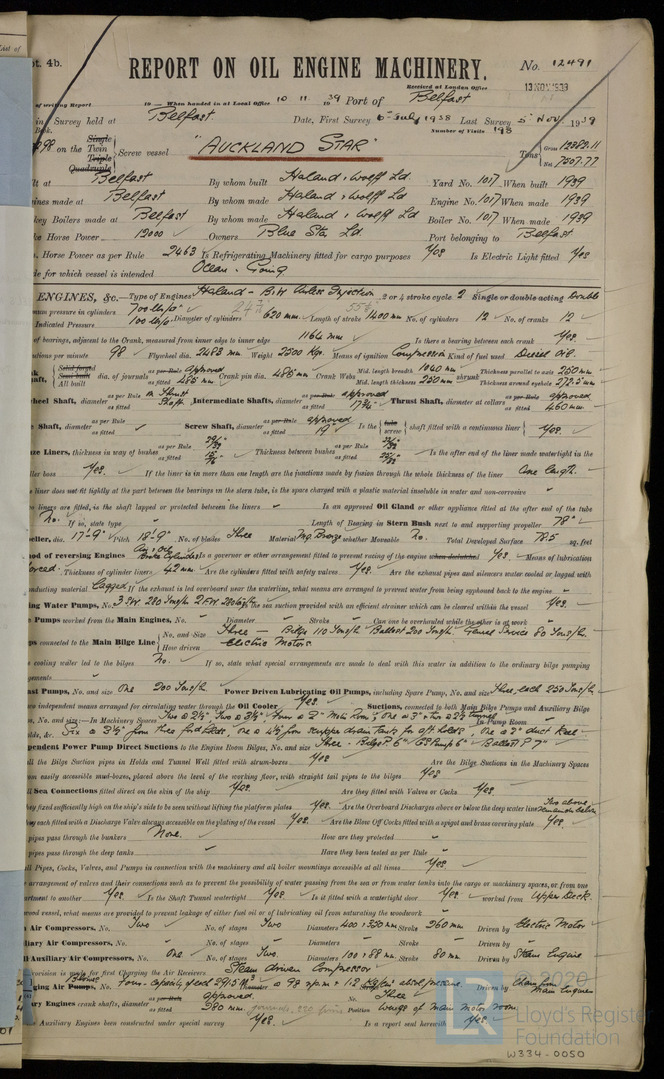 pt. 4b.
REPORT ON OIL ENGINE MACHINERY.
No. 12491
Received at London Office 13 NOV 1939
of writing Report 19 When handed in at Local Office 10 11 1939 Port of Belfast
in Survey held at Belfast Date, First Survey 6th July 1938 Last Survey 5 Nov 1939
Book. Number of Visits 198
on the Single Twin Triple Quadruple Screw vessel "AUCKLAND STAR" Tons Gross Net 7507.77
lt at Belfast By whom built Harland & Wolff Ld Yard No. 1017 When built 1939
ines made at Belfast By whom made Harland & Wolff Ld Engine No. 1017 When made 1939
key Boilers made at Belfast By whom made Harland & Wolff Ld Boiler No. 1017 When made 1939
ke Horse Power 12000 Owners Blue Star Ld. Port belonging to Belfast
. Horse Power as per Rule 2463 Is Refrigerating Machinery fitted for cargo purposes Yes Is Electric Light fitted Yes
de for which vessel is intended Ocean Going
ENGINES, &c.—Type of Engines Harland - B&W Airless Injection 2 or 4 stroke cycle 2 Single or double acting Double
mum pressure in cylinders 700 lb/□" Diameter of cylinders 620 mm Length of stroke 1400 mm No. of cylinders 12 No. of cranks 12
Indicated Pressure 100 lb/□"
of bearings, adjacent to the Crank, measured from inner edge to inner edge 1164 mm Is there a bearing between each crank Yes.
utions per minute 98 Flywheel dia. 2483 mm Weight 2500 Kgs. Means of ignition Compression Kind of fuel used Diesel Oil.
Solid forged Semi built All built dia. of journals as per Rule approved as fitted 485 mm Crank pin dia. 485 mm Crank Webs Mid. length breadth 1040 mm Mid. length thickness 250 mm shrunk Thickness parallel to axis 250 mm Thickness around eyehole 272.5 mm
heel Shaft, diameter as per Rule as fitted Thrust Shaft Intermediate Shafts, diameter as per Rule approved as fitted 17¾" Thrust Shaft, diameter at collars as per Rule approved as fitted 460 mm
e Shaft, diameter as per Rule as fitted Screw Shaft, diameter as per Rule approved as fitted 19" Is the tube screw shaft fitted with a continuous liner Yes.
ze Liners, thickness in way of bushes as per Rule as fitted Thickness between bushes as per Rule as fitted Is the after end of the liner made watertight in the
ller boss Yes. If the liner is in more than one length are the junctions made by fusion through the whole thickness of the liner One length.
e liner does not fit tightly at the part between the bearings in the stern tube, is the space charged with a plastic material insoluble in water and non-corrosive
o liners are fitted, is the shaft lapped or protected between the liners Is an approved Oil Gland or other appliance fitted at the after end of the tube
No. If so, state type Length of Bearing in Stern Bush next to and supporting propeller 78"
eller, dia. 17'-9" Pitch 18'-9" No. of blades Three Material Mg. Bronze whether Moveable No. Total Developed Surface 78.5 sq. feet
od of reversing Engines Is a governor or other arrangement fitted to prevent racing of the engine when declutched Yes. Means of lubrication
Forced. Thickness of cylinder liners 42 mm Are the cylinders fitted with safety valves Yes. Are the exhaust pipes and silencers water cooled or lagged with
nducting material Lagged If the exhaust is led overboard near the waterline, what means are arranged to prevent water from being syphoned back to the engine
ing Water Pumps, No. 3 S.W. 280 Tons/h 2 F.W. 280 Tons/h the sea suction provided with an efficient strainer which can be cleared within the vessel Yes.
Pumps worked from the Main Engines, No. Diameter Stroke Can one be overhauled while the other is at work
ps connected to the Main Bilge Line No. and Size Three - Bilge 110 Tons/h Ballast 200 Tons/h General Service 80 Tons/h.
How driven Electric Motors
e cooling water led to the bilges No. If so, state what special arrangements are made to deal with this water in addition to the ordinary bilge pumping
gements
ast Pumps, No. and size One 200 Tons/h. Power Driven Lubricating Oil Pumps, including Spare Pump, No. and size Three, each 250 Tons/h
wo independent means arranged for circulating water through the Oil Cooler Yes. Suctions, connected to both Main Bilge Pumps and Auxiliary Bilge
s, No. and size:—In Machinery Spaces Two @ 2½" Two @ 3½" Four @ 3" Motor Room, One @ 3" Two @ 2½" tunnel In Pump Room
lds, &c. Six @ 3½" from three ford holds, One @ 4½" from scupper drain tanks for aft holds, One @ 2" duct keel
pendent Power Pump Direct Suctions to the Engine Room Bilges, No. and size Three - Bilge P. 6" G.S. Pump 6" Ballast P. 7"
ll the Bilge Suction pipes in Holds and Tunnel Well fitted with strum-boxes Yes Are the Bilge Suctions in the Machinery Spaces
m easily accessible mud-boxes, placed above the level of the working floor, with straight tail pipes to the bilges Yes
ll Sea Connections fitted direct on the skin of the ship Yes. Are they fitted with Valves or Cocks Yes.
hey fixed sufficiently high on the ship's side to be seen without lifting the platform plates Yes. Are the Overboard Discharges above or below the deep water line Two above, remainder below
hey each fitted with a Discharge Valve always accessible on the plating of the vessel Yes. Are the Blow Off Cocks fitted with a spigot and brass covering plate Yes.
pipes pass through the bunkers None. How are they protected
pipes pass through the deep tanks Have they been tested as per Rule
ll Pipes, Cocks, Valves, and Pumps in connection with the machinery and all boiler mountings accessible at all times Yes.
e arrangement of valves and their connections such as to prevent the possibility of water passing from the sea or from water tanks into the cargo or machinery spaces, or from one
artment to another Yes. Is the Shaft Tunnel watertight Yes. Is it fitted with a watertight door Yes worked from Upper Deck.
ood vessel, what means are provided to prevent leakage of either fuel oil or of lubricating oil from saturating the woodwork
Air Compressors, No. Two No. of stages Two Diameters 400 & 350 mm Stroke 260 mm Driven by Electric Motor
liary Air Compressors, No. No. of stages Diameters Stroke Driven by
ll Auxiliary Air Compressors, No. One No. of stages Two Diameters 100 & 88 mm Stroke 80 mm Driven by Steam Engine
provision is made for first Charging the Air Receivers Steam driven Compressor
ging Air Pumps, No. Four - capacity of each @ 98 rpm Driven by Chain from Main Engines
ry Engines crank shafts, diameter as per Rule approved as fitted 280 mm No. Three Position Wings of main motor room
Auxiliary Engines been constructed under special survey Yes. Is a report sent herewith Yes.
© 2020
Lloyd's Register
Foundation
W334-0050